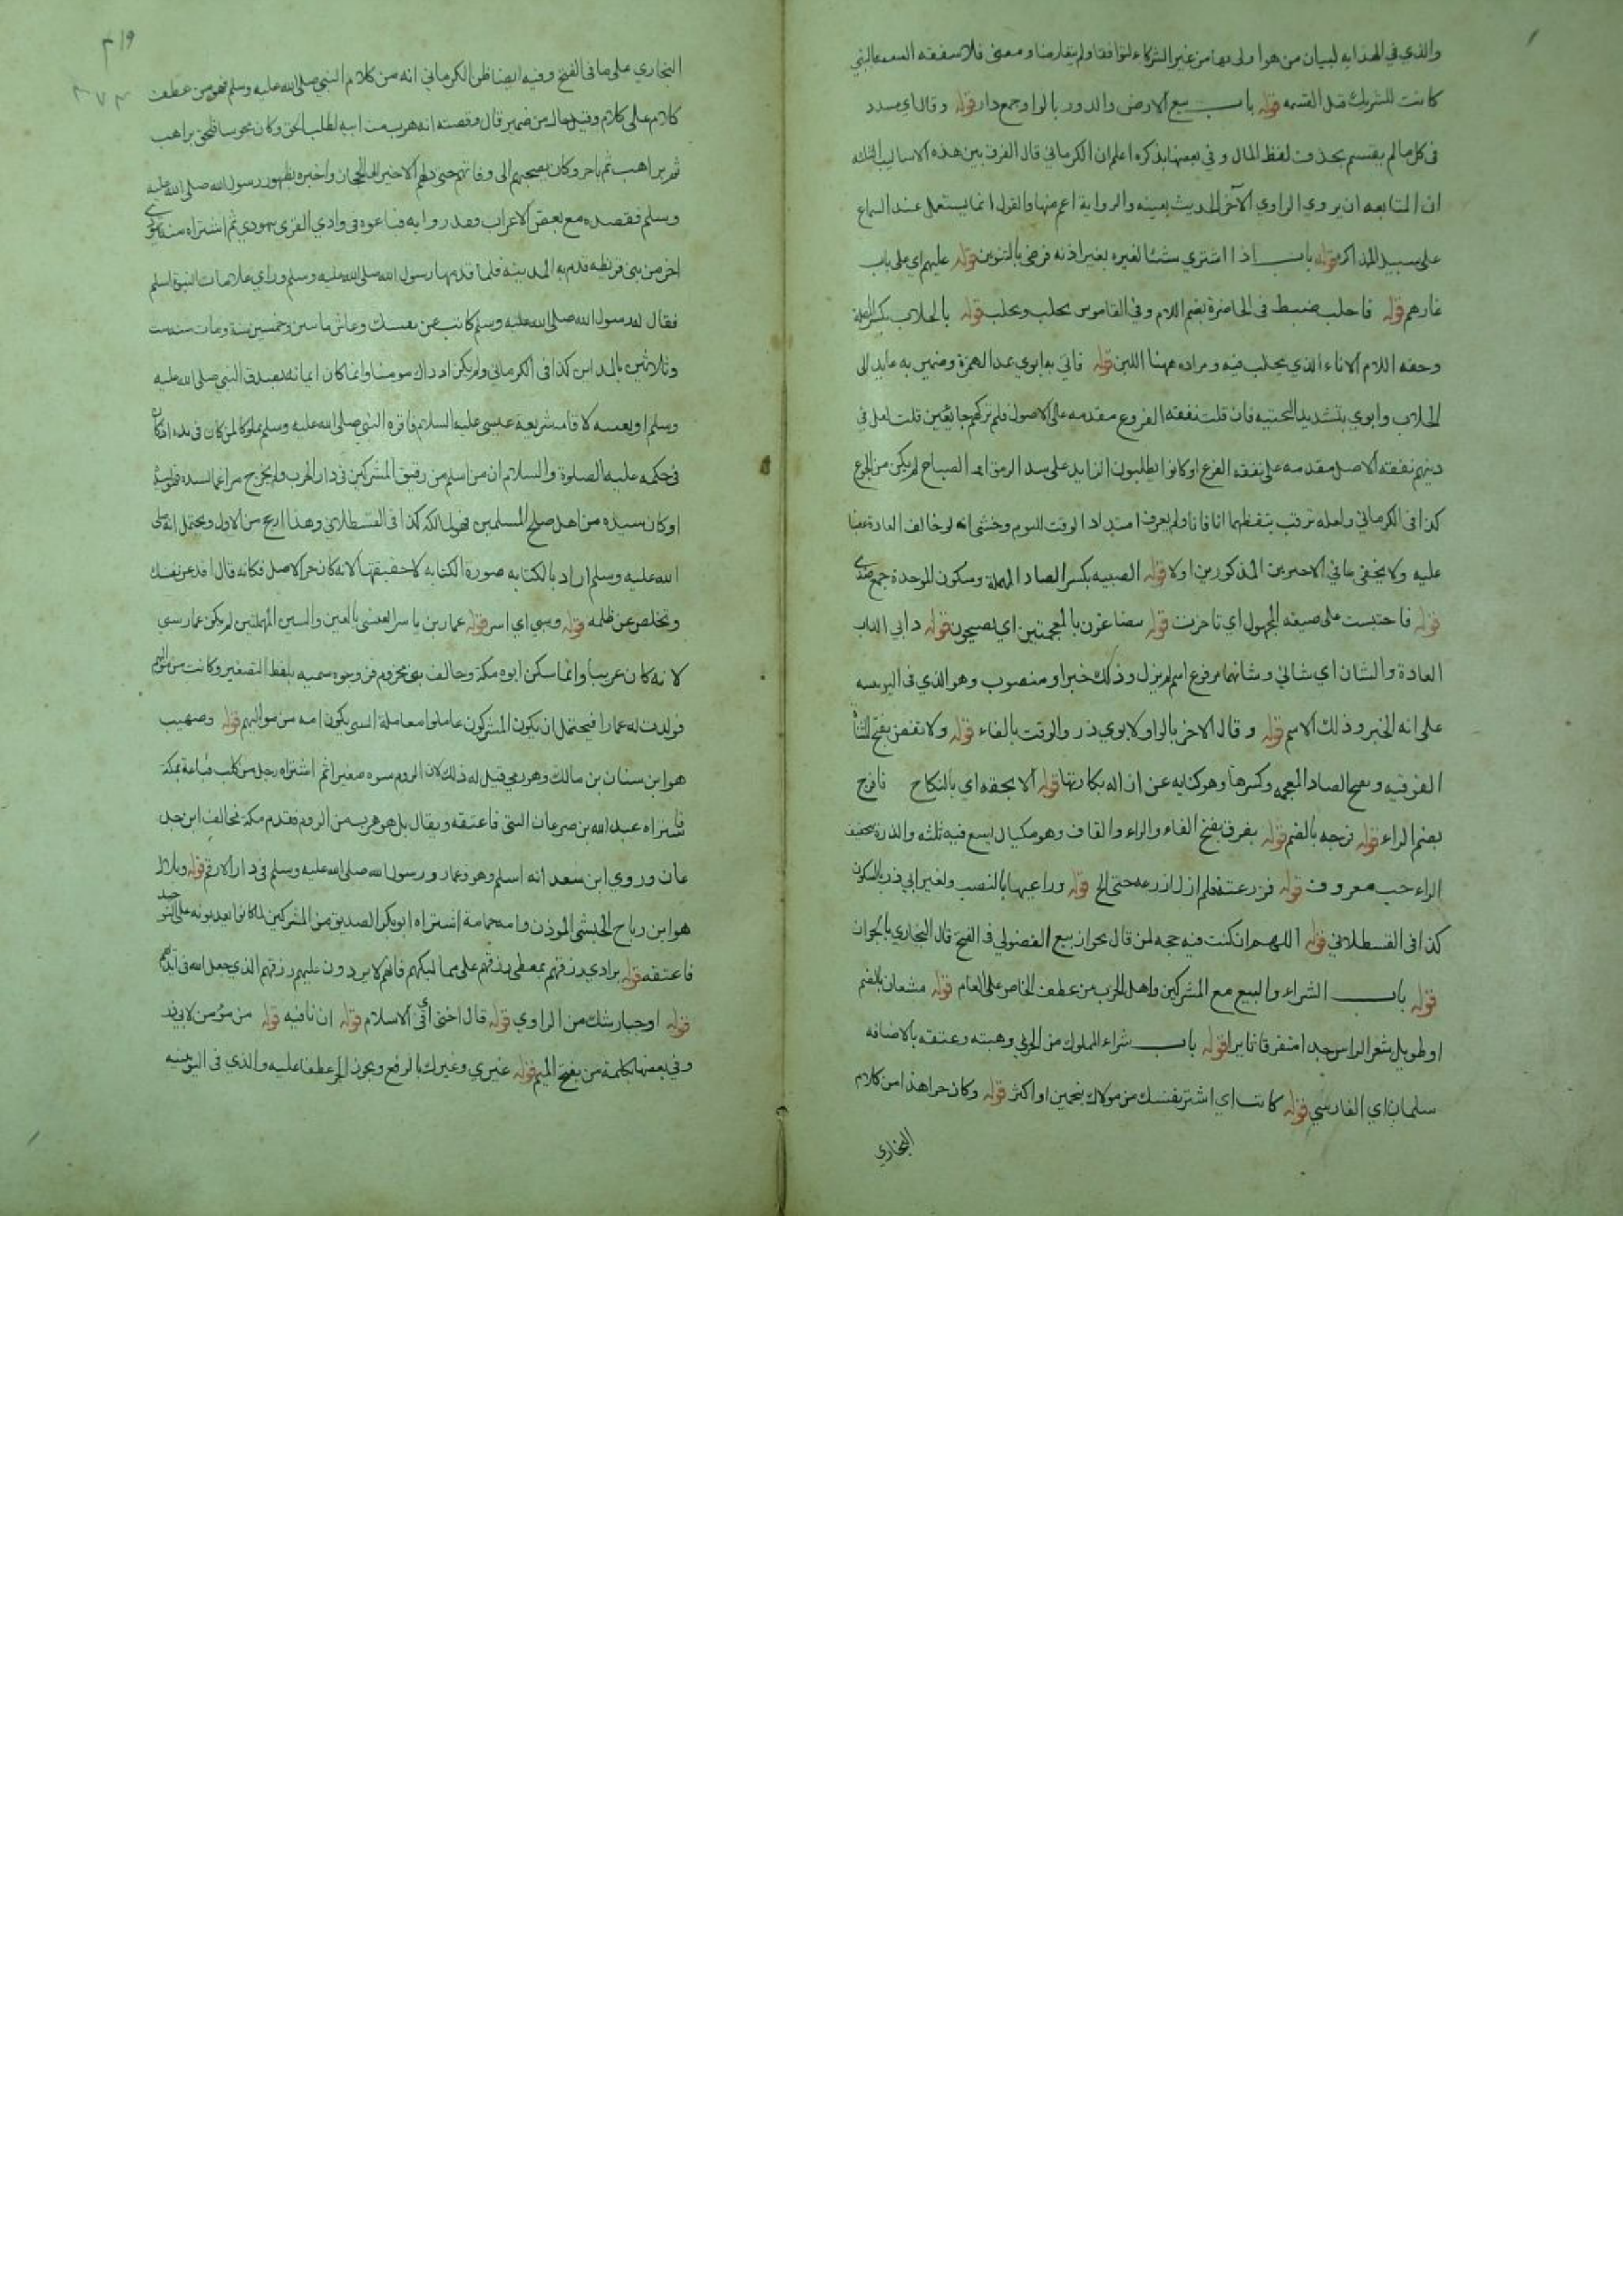 والذي في الهدايه لبيان من هو اولى بها من غير الشركاء لتوافقا ولم يتعارضا ومعنى فلا شفعه الشفعه التي
كانت للشريك قبل القسمه قوله باب بيع الارض والدور بالواو جمع دار قوله وقال اي مسدد
في كل مالم يقسم بحذف لفظ المال وفي بعضها بذكره اعلم ان الكرماني قال الفرق بين هذه الاساليب الثلثه
ان المتابعه ان يروي الراوي الآخر الحديث بعينه والرواية اعم منها والقول انما يستعمل عند السماع
على سبيل المذاكره قوله باب اذا اشتري شئا لغيره بغير اذنه فرضي بالتنوين قوله عليهم اي على باب
غارهم قوله فاحلب ضبط في الحاضرة بضم اللام وفي القاموس يحلب ويحلب قوله بالحلاب بكسر المهملة
وخفه اللام الاناء الذي يحلب فيه ومراده ههنا اللبن قوله فاتي به ابوي بمد الهمزة وضمير به عايد الى
الحلاب وابوي بتشديد التحتيه فان قلت نفقة الفروع مقدمه على الاصول فلم تركهم جائعين قلت لعل في
دينهم نفقة الاصل مقدمه على نفقه الفرع او كانوا يطلبون الزايد على سد الرمق او الصياح لم يكن من الجوع
كذا في الكرماني ولعله ترقب تيقظهما انا فانا ولم يعرف امتداد الوقت للنوم وخشى انه لو خالف العادة
عليه ولا يخفى ما في الاخيرين المذكورين اولا قوله الصبيه بكسر الصاد المهملة وسكون الموحدة جمع صبي
قوله فاحتبست على صيغه المجهول اي تاخرت قوله يتضاغون بالمعجمتين اي يصيحون قوله دابي الداب
العادة والشان اي شاني وشانهما مرفوع اسم لم يزل وذلك خبر او منصوب وهو الذي في اليونينيه
على انه الخبر وذلك الاسم قوله وقال الاخر بالواو لابوي ذر والوقت بالفاء قوله ولا تفض بفتح التاء
الفوقيه وبفتح الضاد المعجمه وكسرها وهو كنايه عن ازاله بكارتها قوله الا بحقه اي بالنكاح فافرج
بضم الراء قوله فرجه بالضم قوله بفرق بفتح الفاء والراء والقاف وهو مكيال يسع فيه ثلثه والذرة بتخفيف
الراء حب معروف قوله فزرعته فلم ازل ازرعه حتى الخ قوله وراعيها بالنصب ولغير ابي ذر بالسكون
كذا في القسطلاني قوله اللهم ان كنت فيه حجه لمن قال بجواز بيع الفضولي في الفتح قال البخاري بالجواز
قوله باب الشراء والبيع مع المشركين واهل الحرب من عطف الخاص على العام قوله مشعان بالضم
او طويل شعر الراس جدا متفرقا ثايرا قوله باب شراء المملوك من الحربي وهبته وعتقه بالاضافه
سلمان اي الفارسي قوله كاتب اي اشتر نفسك من مولاك بنجمين او اكثر قوله وكان حرا هذا من كلام
البخاري
٣١٩
البخاري على ما في الفتح وفيه ايضا ظن الكرماني انه من كلام النبي صلى الله عليه وسلم فهو من عطف
كلام على كلام وقيل حال من ضمير قال وقصته انه هرب من ابيه لطلب الحق وكان مجوسا فلحق براهب
ثم براهب ثم باخر وكان يصحبهم الى وفاتهم حتى دلهم الاخير الى الحجاز واخبره بظهور رسول الله صلى الله عليه
وسلم فقصده مع بعض الاعراب فغدروا به فباعوه في وادي القرى يهودي ثم اشتراه منه يهودي
اخر من بني قريظه فقدم به المدينه فلما قدمها رسول الله صلى الله عليه وسلم وراي علامات النبوة اسلم
فقال له رسول الله صلى الله عليه وسلم كاتب عن نفسك وعاش مائتين وخمسين سنة ومات سنه ست
وثلاثين بالمداين كذا في الكرماني ولم يكن اذ ذاك مومنا وانما كان ايمانه بصدق النبي صلى الله عليه
وسلم او بعيسه لاقامه شريعة عيسى عليه السلام فاقره النبي صلى الله عليه وسلم مملوكا لمن كان في يده اذ كان
في حكمه عليه الصلوة والسلام ان من اسلم من رقيق المشركين في دار الحرب ولم يخرج مراغما لسيده
او كان سيده من اهل صلح المسلمين فهو لمالكه كذا في القسطلاني وهذا ارجح من الاول ويحتمل انه صلى
الله عليه وسلم اراد بالكتابه صورة الكتابه لا حقيقتها لانه كان حر الاصل فكانه قال افد عن نفسك
وتخلص عن ظلمه قوله وسبي اي اسر قوله عمار بن ياسر العنسي بالعين والسين المهملتين لم يكن عمار سبي
لانه كان عربيا وانما سكن ابوه مكة وحالف بني مخزوم فزوجوه سميه بلفظ التصغير وكانت من مواليهم
فولدت له عمارا فيحتمل ان يكون المشركون عاملوا معاملة السبي بكون امه من مواليهم قوله وصهيب
هو ابن سنان بن مالك وهو رومي قيل له ذلك لان الروم سبوه صغيرا ثم اشتراه رجل من كلب فباعه بمكة
فاشتراه عبد الله بن جدعان التيمي فاعتقه ويقال بل هو هرب من الروم فقدم مكة فحالف ابن جد
عان وروي ابن سعد انه اسلم وهو وعمار ورسول الله صلى الله عليه وسلم في دار الارقم قوله وبلال
هو ابن رباح الحبشي الموذن وامه حمامة اشتراه ابو بكر الصديق من المشركين لما كانوا يعذبونه على التوحيد
فاعتقه قوله برادي رزقهم بمعطى رزقهم على مماليكهم فانهم لا يردون عليهم رزقهم الذي جعل الله في ايديهم
قوله او جبار شك من الراوي قوله قال اختي اي في الاسلام قوله ان نافيه قوله من مؤمن لابي ذر
وفي بعضها كلمة من بفتح الميم قوله غيري وغيرك بالرفع ويجوز الجر عطفا عليه والذي في اليونينيه